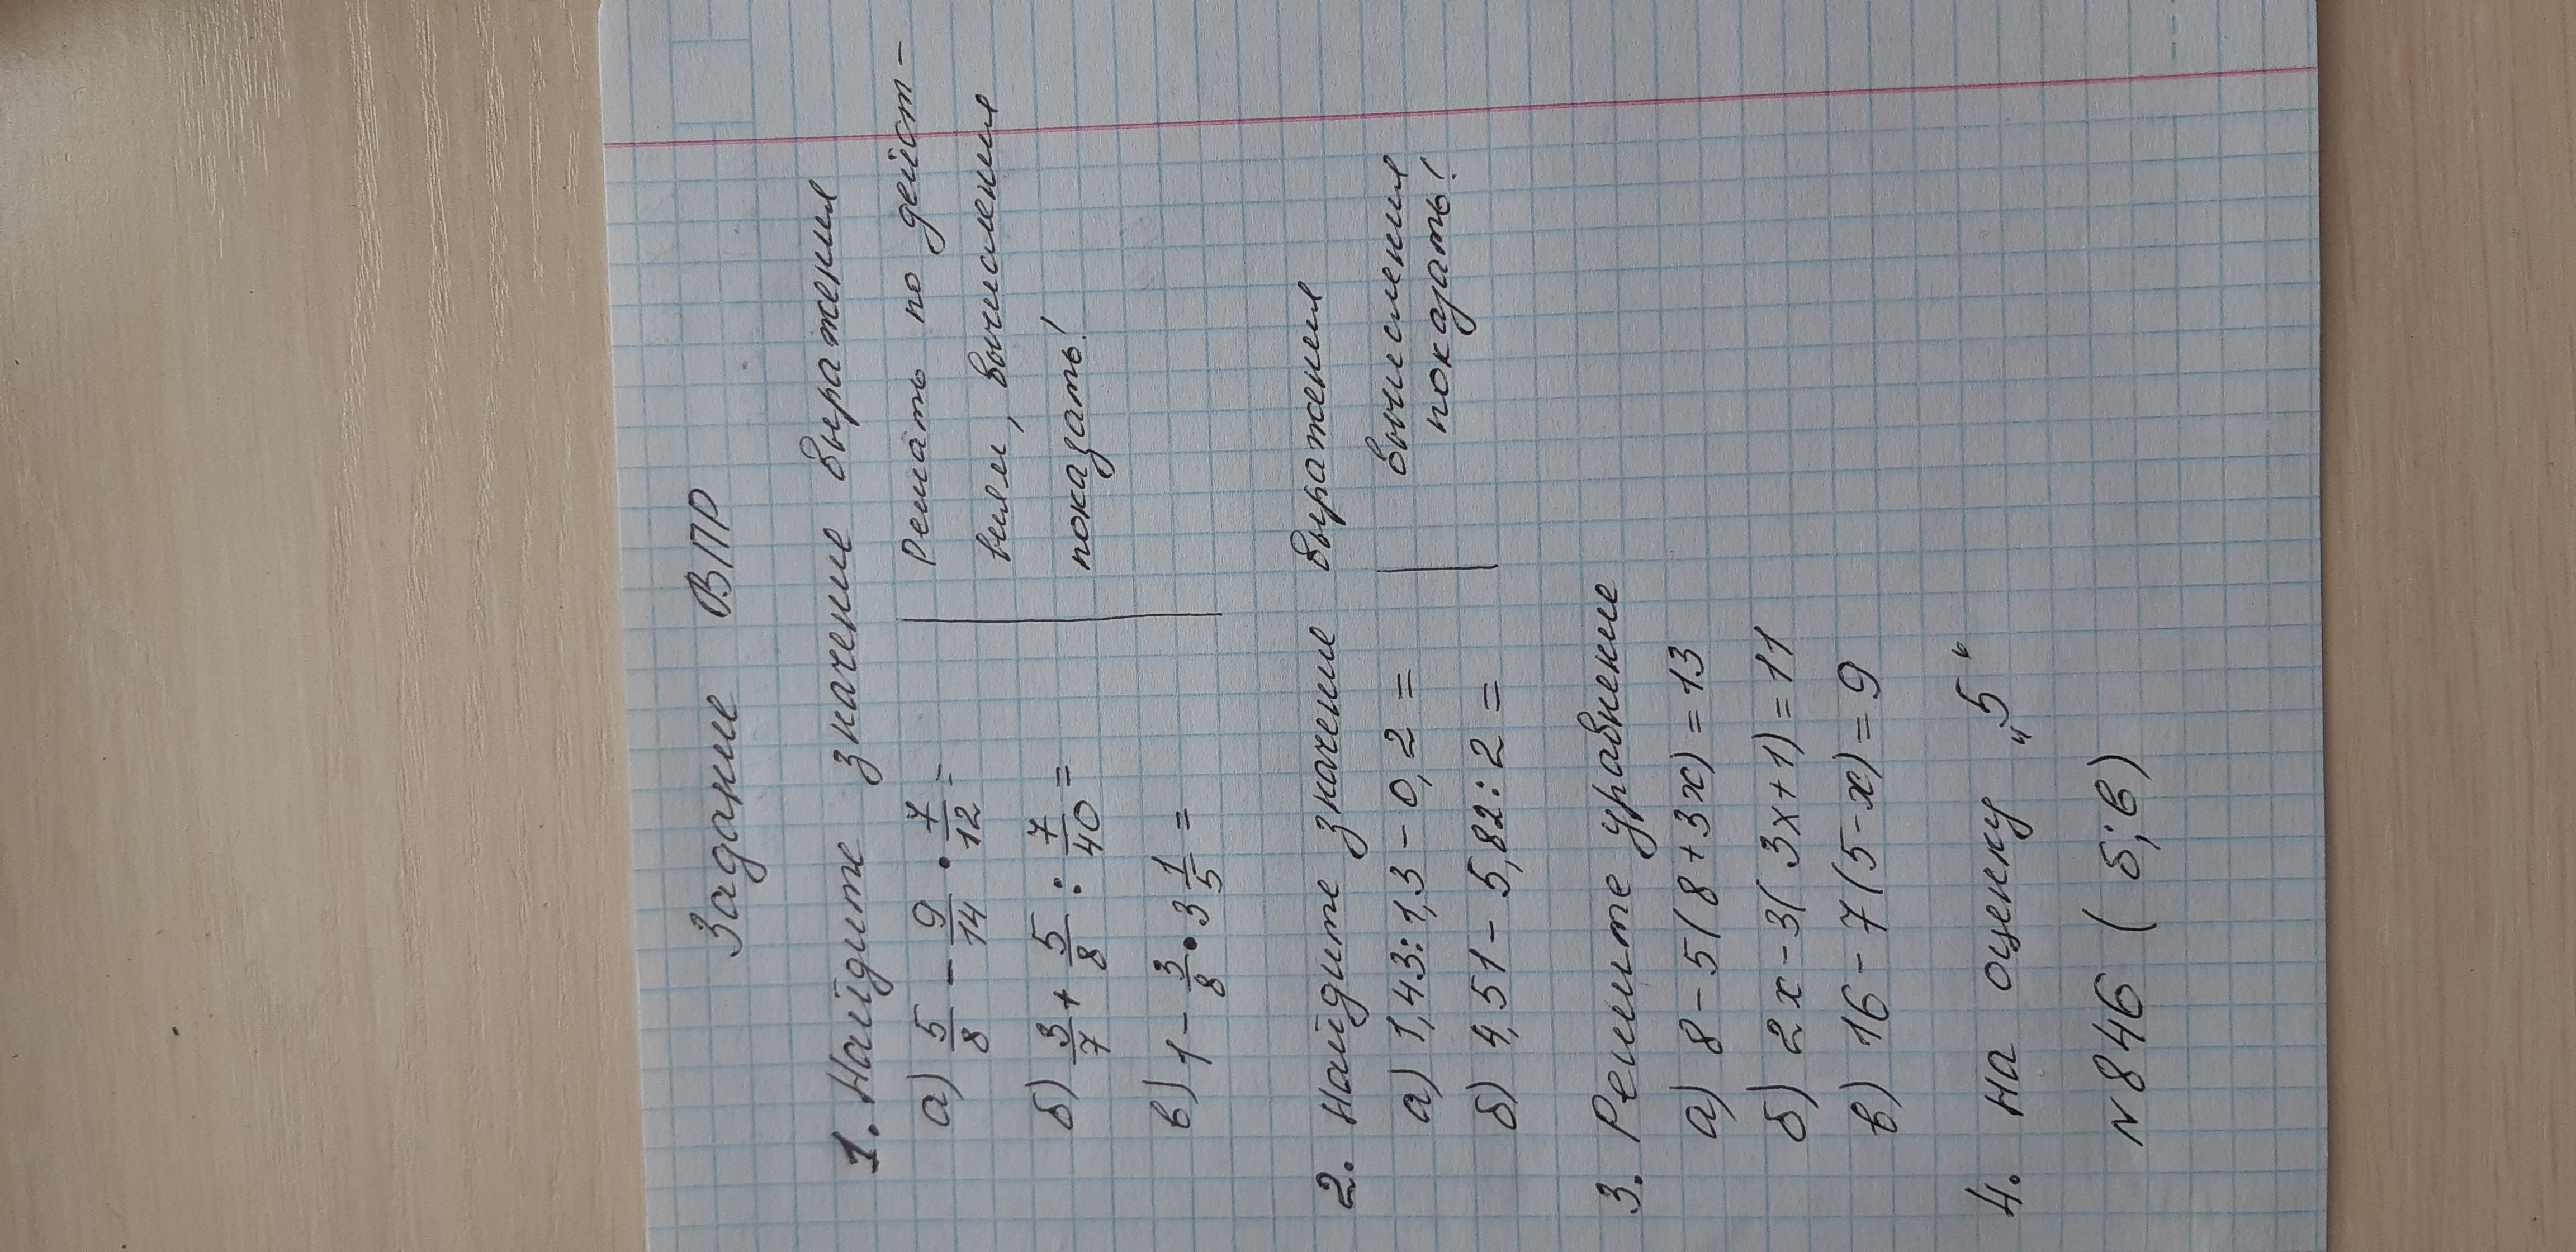 Задание ВПР
1. Найдите значение выражения
а) 5/8 - 9/14 · 7/12 =
б) 3/7 + 5/8 : 7/40 =
в) 1 - 3/8 · 3 1/5 =
Решать по дейст-
виям, вычисления
показать!
2. Найдите значение выражения
а) 1,43 : 1,3 - 0,2 =
б) 4,51 - 5,82 : 2 =
вычисления
показать!
3. Решите уравнение
а) 8 - 5(8 + 3x) = 13
б) 2x - 3(3x + 1) = 11
в) 16 - 7(5 - x) = 9
4. На оценку "5"
№ 846 (б; в)